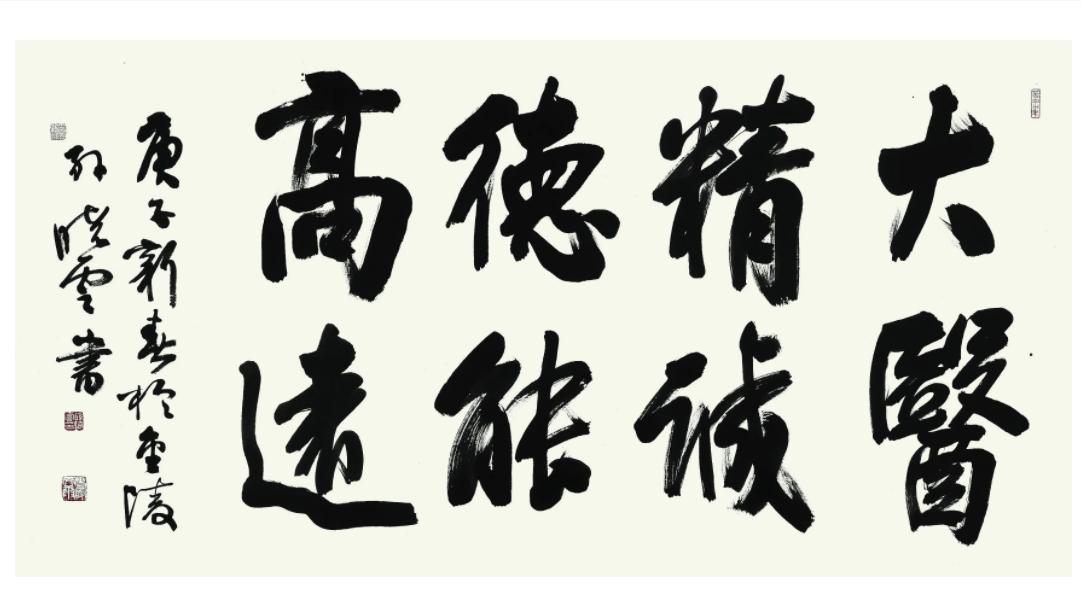 大醫
精诚
德能
高遠
庚子新春於金陵
孙晓雲書